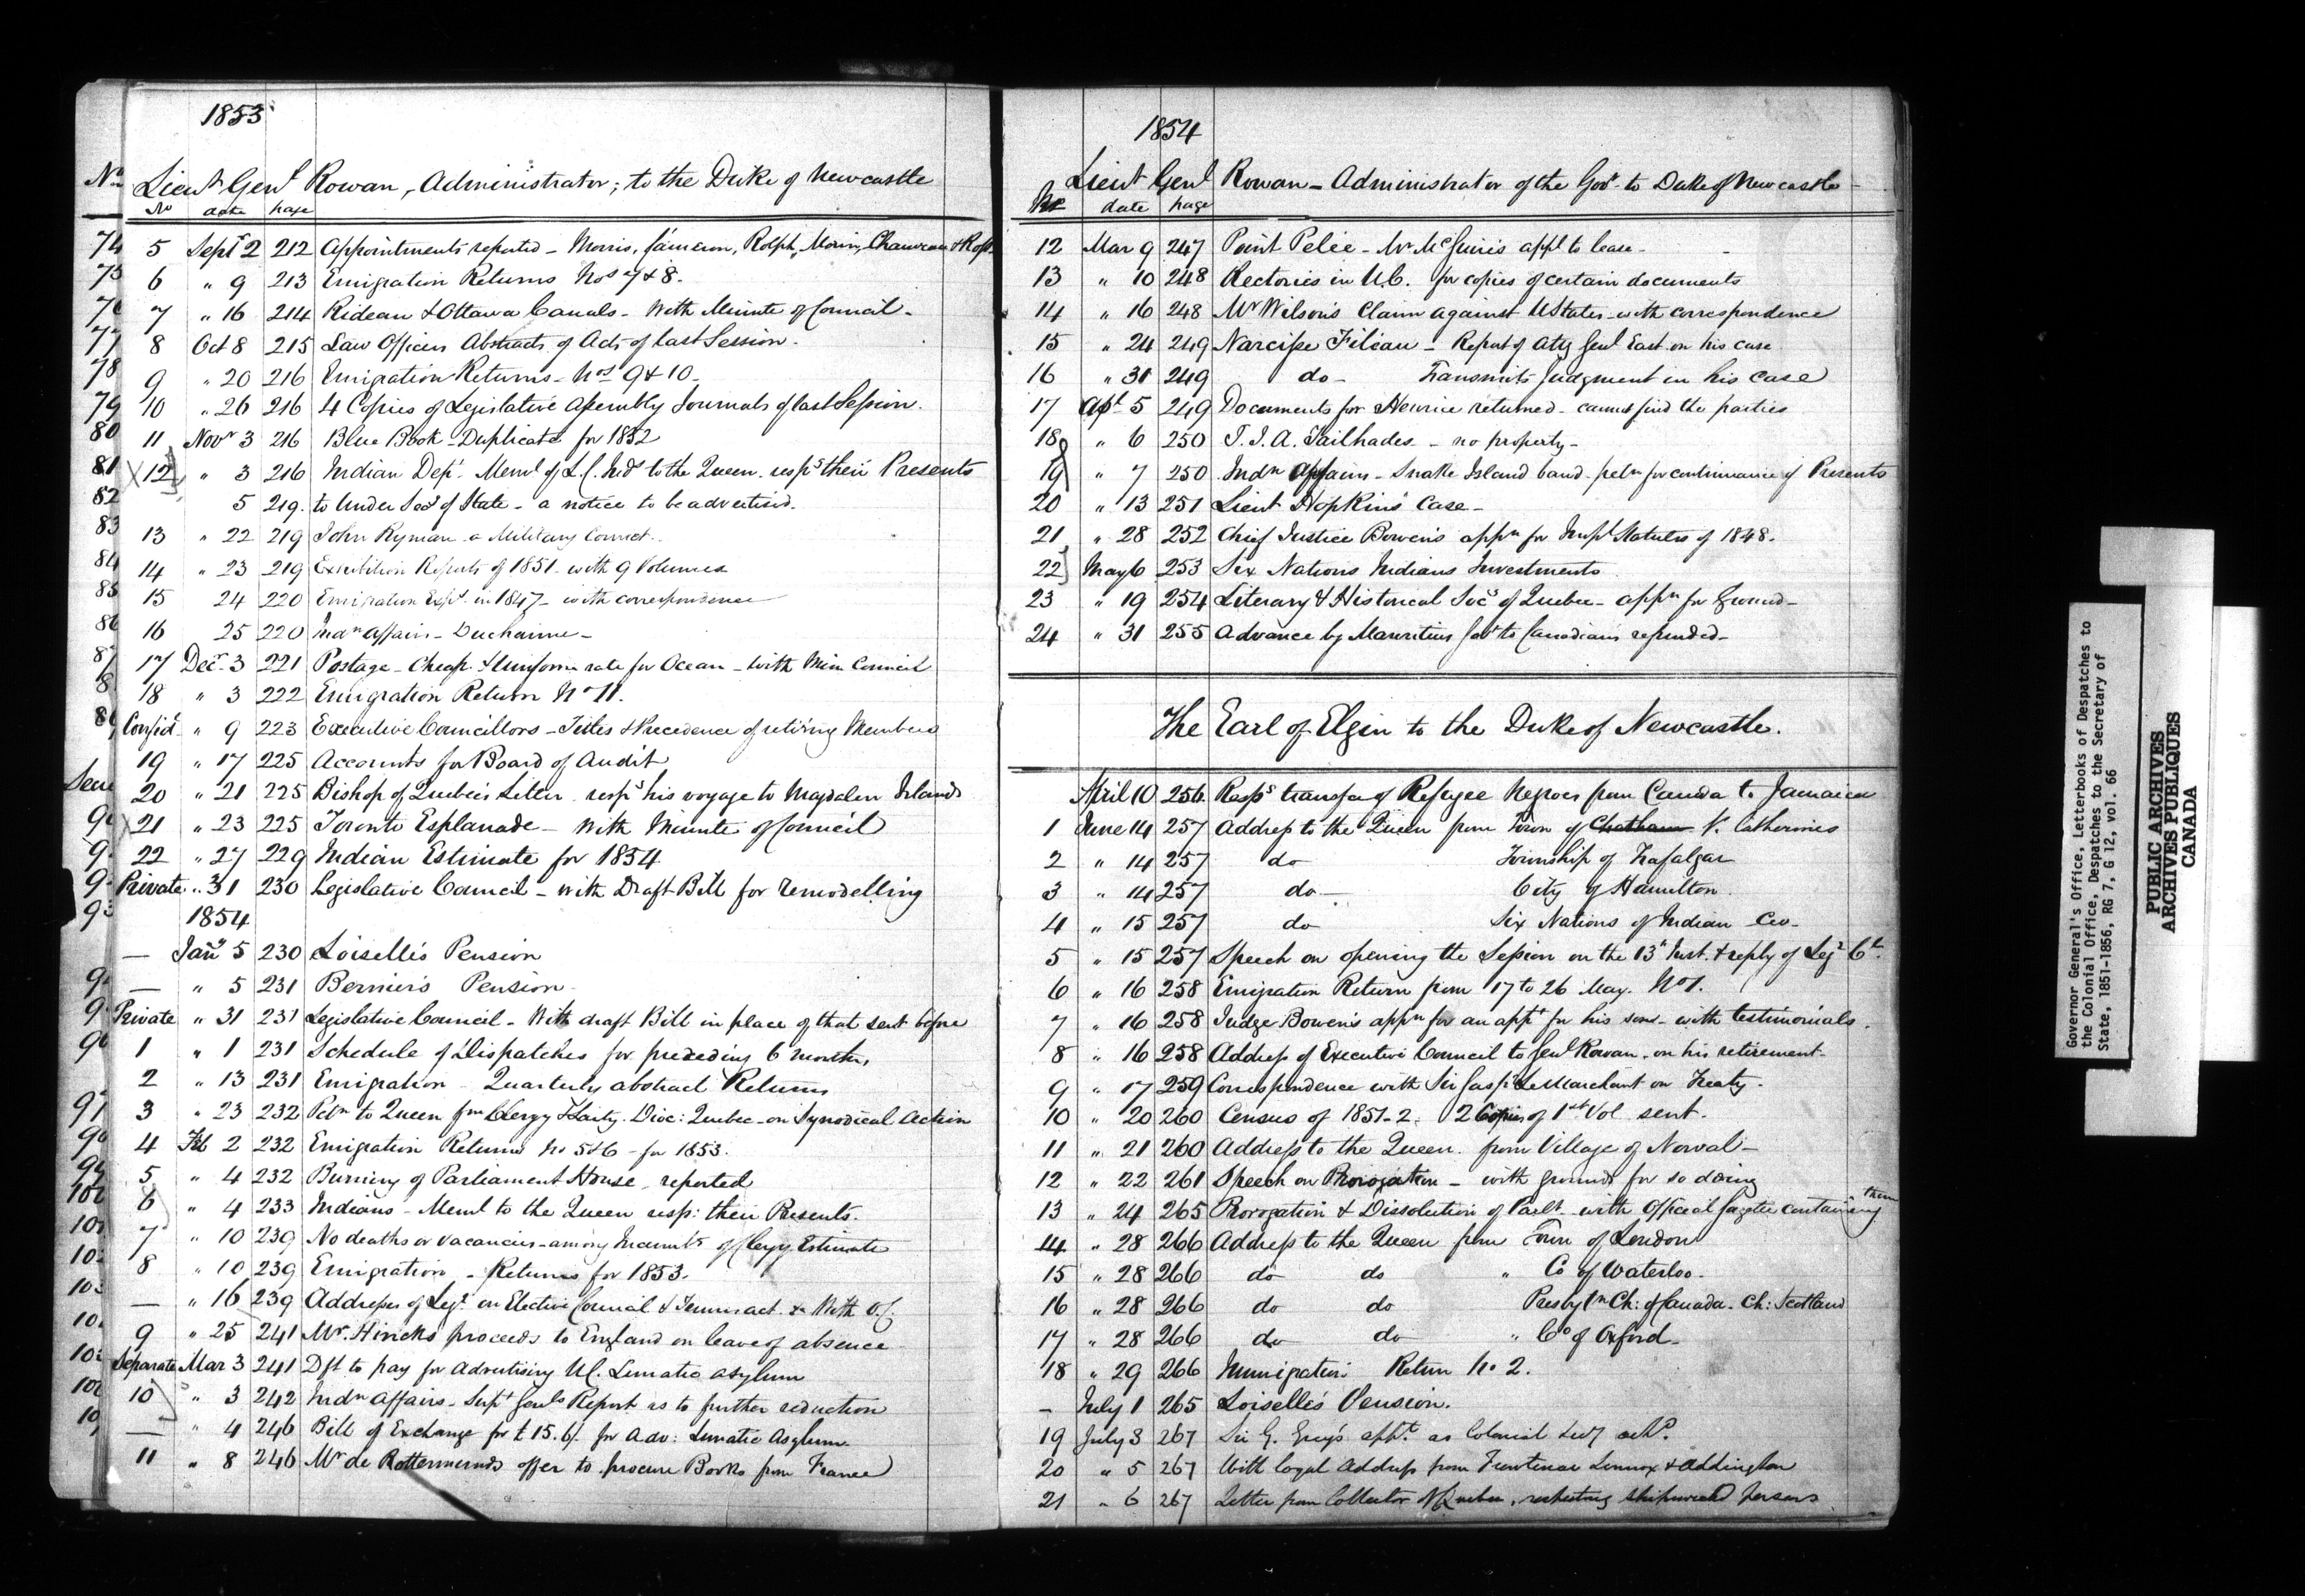 1853
No Lieut Genl Rowan, Administrator; to the Duke of Newcastle
No date page
74 5 Sept 2 212 Appointments reported - Morris, Cameron, Rolph, Morin, Chauveau & Ross
75 6 " 9 213 Emigration Returns Nos 7 & 8.
76 7 " 16 214 Rideau & Ottawa Canals - With Minute of Council -
77 8 Oct 8 215 Law Officers Abstracts of Acts of last Session.
78 9 " 20 216 Emigration Returns - Nos 9 & 10 -
79 10 " 26 216 4 Copies of Legislative Assembly Journals of last Session.
80 11 Novr 3 216 Blue Book - Duplicate for 1852
81 12 " 3 216 Indian Dept - Meml of L.C. Inds to the Queen respg their Presents
82 5 219. to Under Secy of State - a notice to be advertised.
83 13 " 22 219 John Ryman a Military Convict.
84 14 " 23 219 Exhibition Reports of 1851 - with 9 Volumes
85 15 24 220 Emigration Expt. in 1847 - with correspondence
86 16 25 220 Indn affairs - Duchaime -
87 17 Decr 3 221 Postage - Cheap & Uniform rate for Ocean - with Min Council
8 18 " 3 222 Emigration Return No 11.
8 Confidl " 9 223 Executive Councillors - Titles & Precedence of retiring Members
19 " 17 225 Accounts for Board of Audit
20 " 21 225 Bishop of Quebec's Letter respg his voyage to Magdalen Islands
9 21 " 23 225 Toronto Esplanade - With Minute of Council
9 22 " 27 229 Indian Estimate for 1854
9 Private " 31 230 Legislative Council - with Draft Bill for remodelling
93 1854
— Jany 5 230 Loiselle's Pension
9 — " 5 231 Bernier's Pension
9 Private " 31 231 Legislative Council - With draft Bill in place of that sent before
96 1 " 1 231 Schedule of Dispatches for preceding 6 months,
2 " 13 231 Emigration - Quarterly abstract Returns
97 3 " 23 232 Petn to Queen fm Clergy & Laity. Dioc: Quebec - on Synodical Action
4 Feb 2 232 Emigration Returns No 5 & 6 - for 1853.
99 5 " 4 232 Burning of Parliament House, reported
100 6 " 4 233 Indians - Meml to the Queen resp: their Presents.
7 " 10 239 No deaths or vacancies - among Incumbts of Clergy Estimate
8 " 10 239 Emigration - Returns for 1853.
— " 16 239 Addresses of Legr on Elective Council &
9 " 25 241 Mr. Hincks proceeds to England on leave of absence
Separate Mar 3 241 Dft to pay for advertising UC. Lunatic asylum
10 " 3 242 Indn affairs - Supt Genls Report as to further reduction
— " 4 246 Bill of Exchange for £15.6/. for Adv: Lunatic Asylum
11 " 8 246 Mr de Rottermunds offer to procure Books from France
1854
Lieut Genl Rowan - Administrator of the Govt to Duke of Newcastle -
No date page
12 Mar 9 247 Point Pelée - Mr McGuires appl to lease -
13 " 10 248 Rectories in U.C. for copies of certain documents
14 " 16 248 Mr Wilson's Claim against UStates - with correspondence
15 " 24 249 Narcisse Filiau - Report of Atty Genl East on his case
16 " 31 249 do - Transmits Judgment in his case
17 Apl 5 249 Documents for returned - cannot find the parties
18 " 6 250 T. J. A. Tailhades - no property -
19 " 7 250 Indn Affairs - Snake Island band - petn for continuance of Presents
20 " 13 251 Lieut Hopkins' Case -
21 " 28 252 Chief Justice Bowen's appn for Impl Statutes of 1848.
22 May 6 253 Six Nations Indians Investments
23 " 19 254 Literary & Historical Socy of Quebec - appn for Ground -
24 " 31 255 Advance by Mauritius Govt to Canadians refunded -
The Earl of Elgin to the Duke of Newcastle.
April 10 256. Respg transfer of Refugee Negroes from Canada to Jamaica
1 June 14 257 Address to the Queen from Town of Chatham St. Catherines
2 " 14 257 do Township of Trafalgar
3 " 14 257 do - City of Hamilton
4 " 15 257 do Six Nations of Indian Co -
5 " 15 257 Speech on opening the Session on the 13th Inst. & reply of Legr Cl.
6 " 16 258 Emigration Return from 17 to 26 May. No 1.
7 " 16 258 Judge Bowen's appn for an appt for his sons - with testimonials.
8 " 16 258 Address of Executive Council to Genl Rowan, on his retirement -
9 " 17 259 Correspondence with Sir Gaspd LeMarchant on Treaty.
10 " 20 260 Census of 1851-2. 2 Copies of 1st Vol sent.
11 " 21 260 Address to the Queen from Village of Norval -
12 " 22 261 Speech on Prorogation - with grounds for so doing
13 " 24 265 Prorogation & Dissolution of Parlt - with Official Gazette containing them
14 " 28 266 Address to the Queen from Town of London
15 " 28 266 do do " Co of Waterloo -
16 " 28 266 do do Presbytn Ch: of Canada - Ch: Scotland
17 " 28 266 do do " Co of Oxford -
18 " 29 266 Immigration Return No 2.
- July 1 265 Loiselle's Pension.
19 July 3 267 Sir G. Grey's appt. as Colonial Secy
20 " 5 267 With loyal Address from Frontenac Lennox & Addington
21 " 6 267 Letter from Collector of Quebec, respecting Shipwrecked persons
Governor General's Office, Letterbooks of Despatches to
the Colonial Office, Despatches to the Secretary of
State, 1851-1856, RG 7, G 12, vol. 66
PUBLIC ARCHIVES
ARCHIVES PUBLIQUES
CANADA